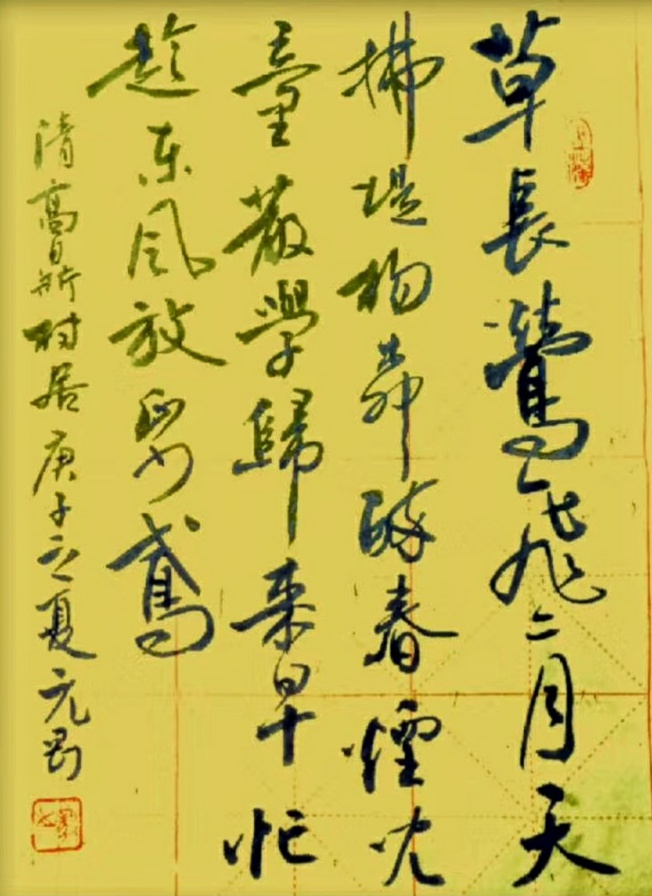 草長鶯飛二月天
拂堤楊柳醉春煙兒
童散學歸來早忙
趁東風放紙鳶
清高鼎村居庚子之夏元